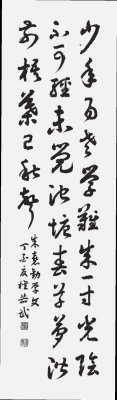 少年易老學難成一寸光陰
不可輕未覺池塘春草夢階
前梧葉已秋聲
朱熹勸學文
丁亥夏